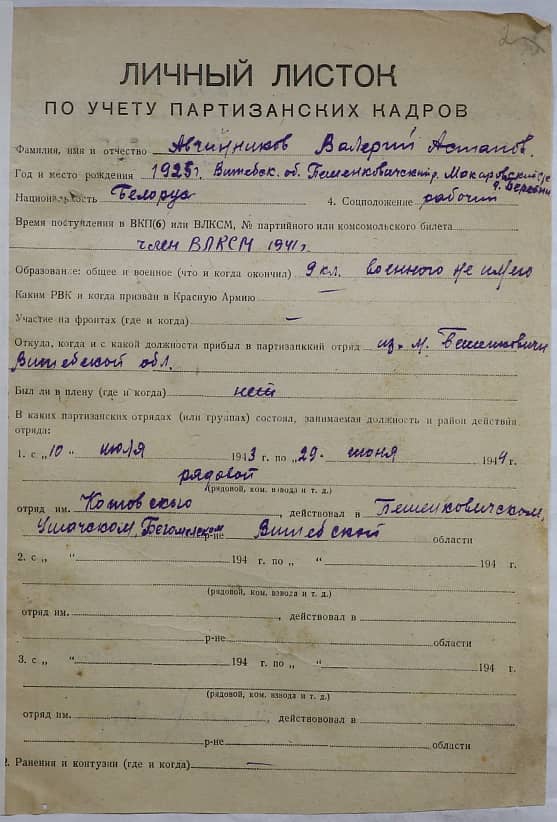 ЛИЧНЫЙ ЛИСТОК
ПО УЧЕТУ ПАРТИЗАНСКИХ КАДРОВ
Фамилия, имя и отчество Авчинников Валерий Астапов.
Год и место рождения 1925г. Витебск. об. Бешенковический р. Макаровский с/с
д. Веревки
Национальность Белорус 4. Соцположение рабочий
Время поступления в ВКП(б) или ВЛКСМ, № партийного или комсомольского билета
член ВЛКСМ 1941г.
Образование: общее и военное (что и когда окончил) 9 кл. военного не имею
Каким РВК и когда призван в Красную Армию —
Участие на фронтах (где и когда) —
Откуда, когда и с какой должности прибыл в партизанккий отряд из м. Бешенковичи
Витебской обл.
Был ли в плену (где и когда) нет
В каких партизанских отрядах (или группах) состоял, занимаемая должность и район действия
отряда:
1. с „10" июля 1943 г. по „29" июня 1944 г.
рядовой
(рядовой, ком. взвода и т. д.)
отряд им. Котовского, действовал в Бешенковичском,
Ушачском, Бегомльском р-не Витебской области
2. с „ " 194 г. по „ " 194 г.
(рядовой, ком. взвода и т. д.)
отряд им. , действовал в
р-не области
3. с „ " 194 г. по „ " 194 г.
(рядовой, ком. взвода и т. д.)
отряд им. , действововал в
р-не области
2. Ранения и контузии (где и когда) —